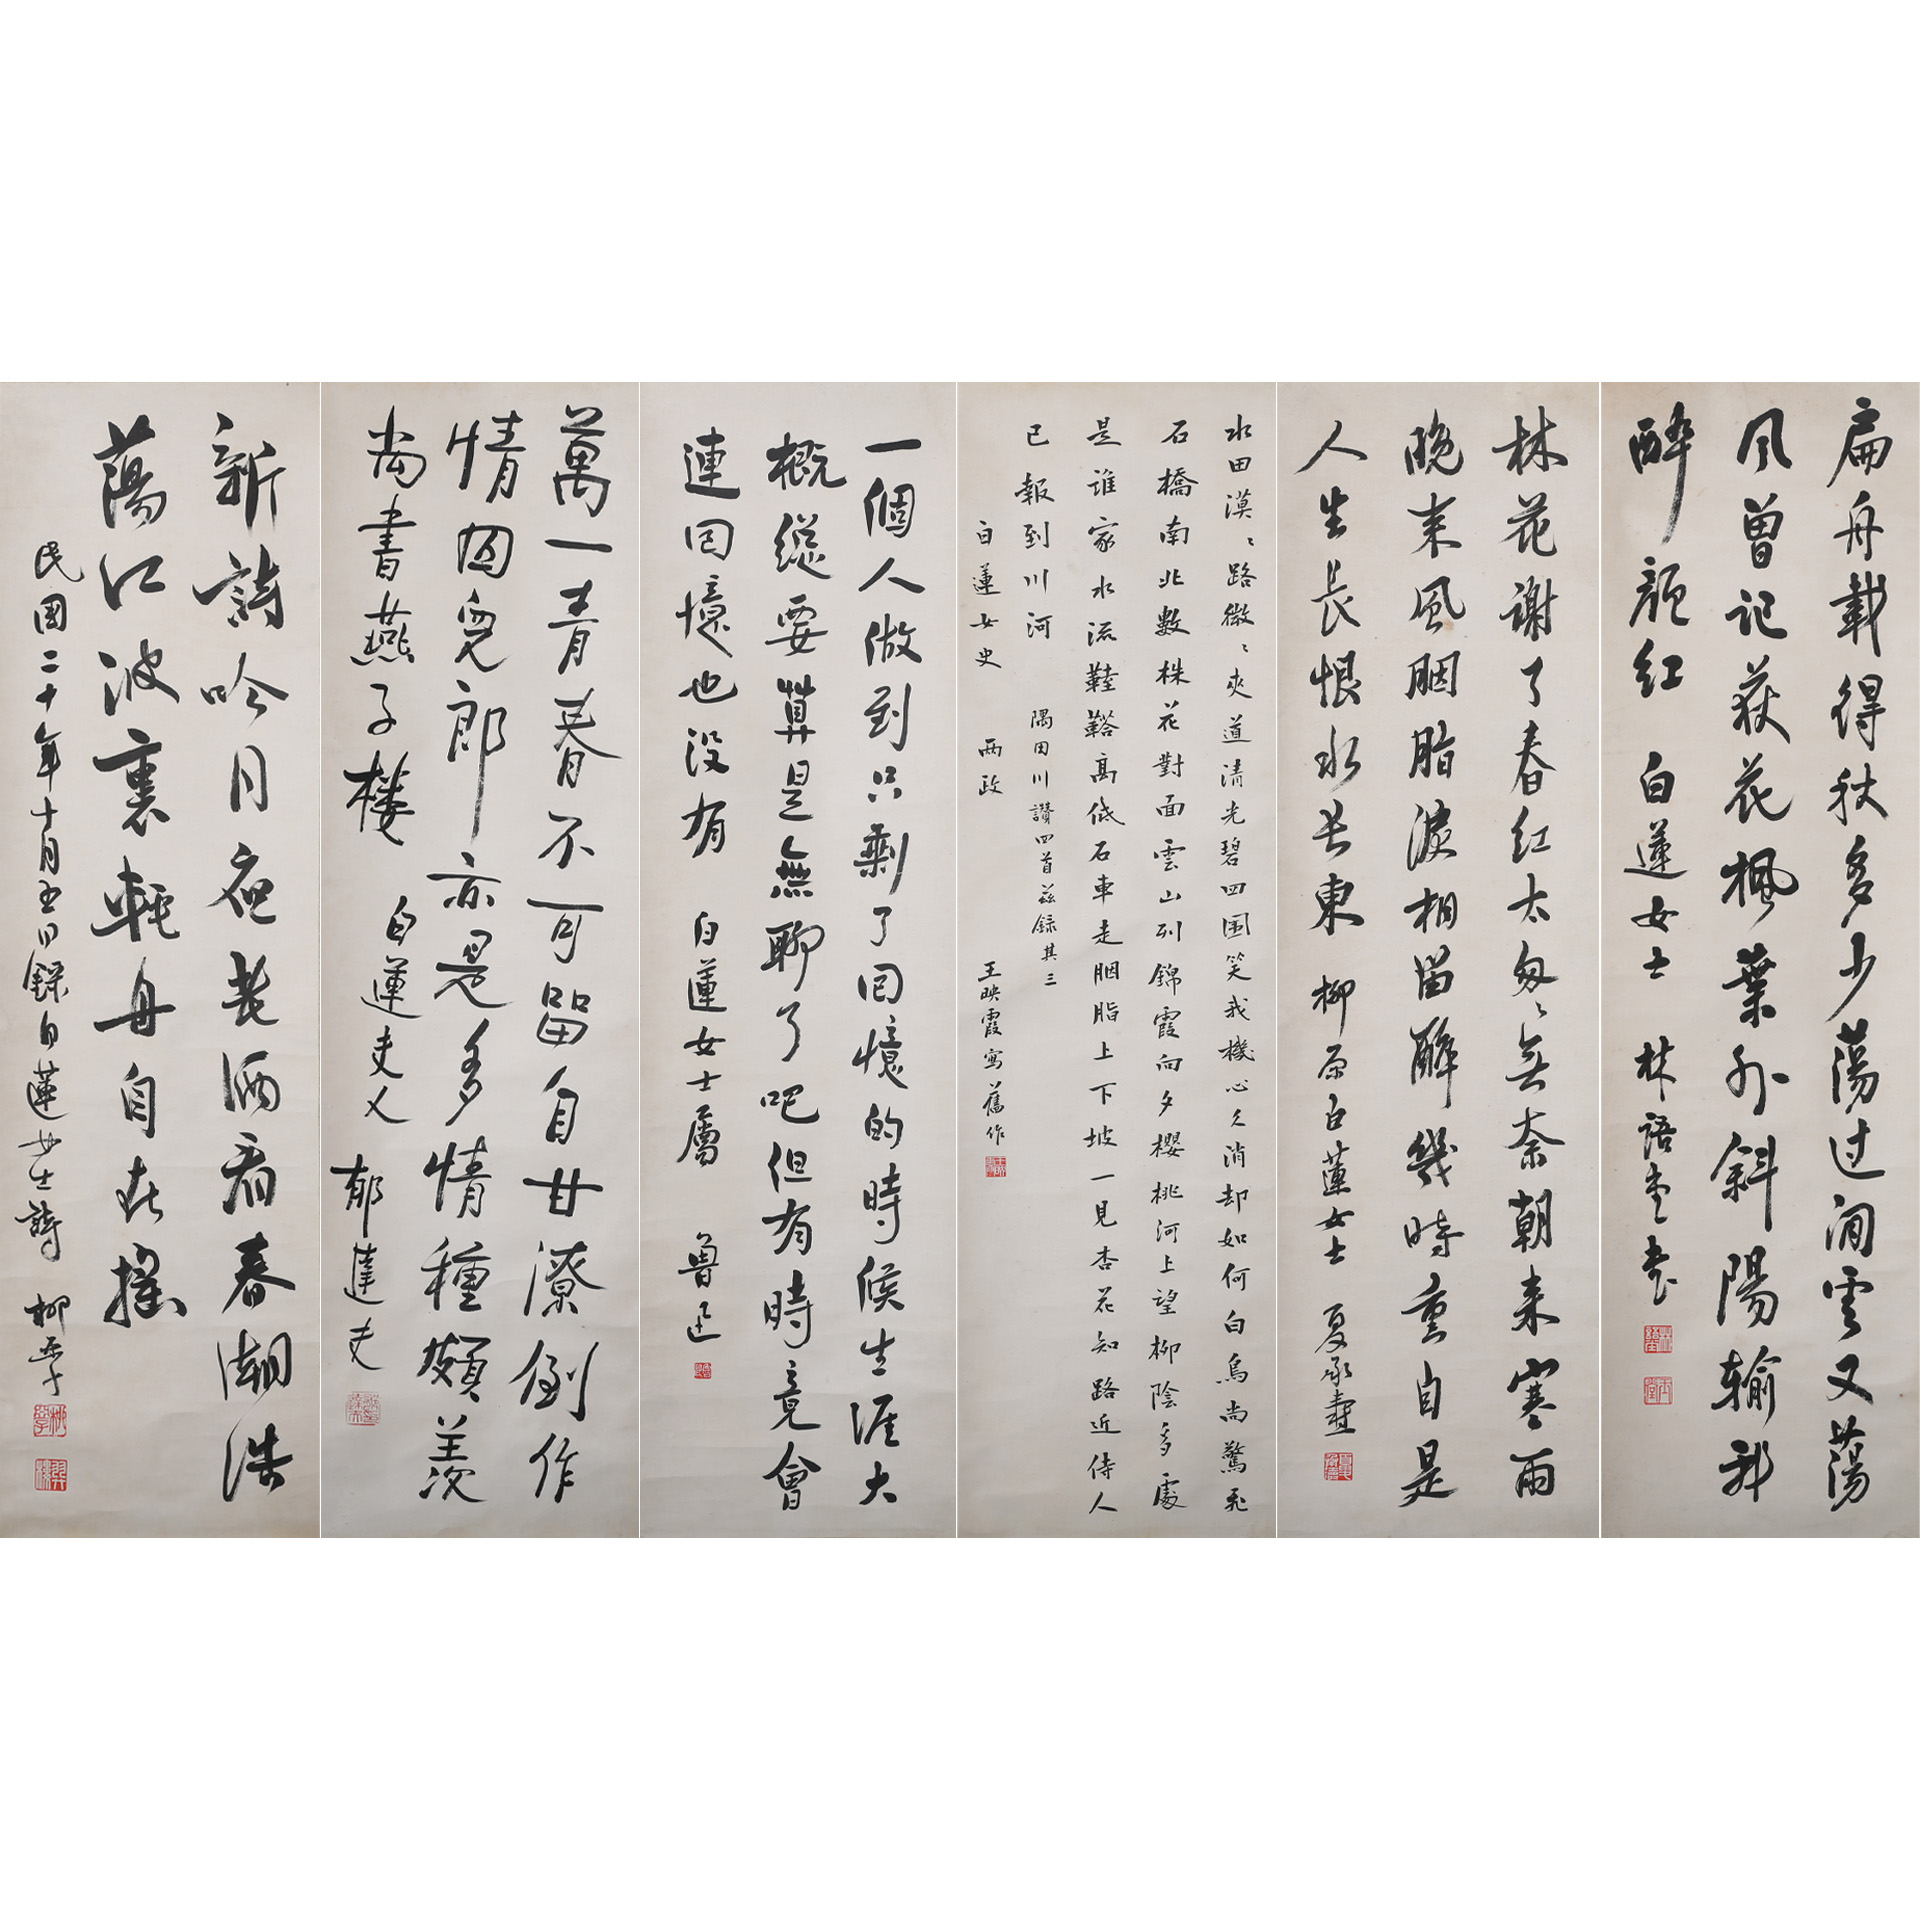 扁舟載得秋多少蕩过澗雲又蕩
风曾記荻花楓葉外斜陽输我
醉顏红
白蓮女士 林語堂書
林花谢了春红太匆〻無奈朝来寒雨
晚来風胭脂淚相留醉幾時重自是
人生長恨水長東 柳原白蓮女士 夏承燾
水田漠〻路微〻夾道清光碧四围笑我機心久消却如何白鳥尚驚飛
石橋南北數株花對面雲山列錦霞向夕櫻桃河上望柳陰多處
是誰家水流鞋韜高低石車走胭脂上下坡一見杏花知路近侍人
已報到川河
隅田川讚四首兹録其三
白蓮女史 兩政
王映霞寫舊作
一個人做到只剩了回憶的時候生涯大
概總要算是無聊了吧但有時竟會
連回憶也没有
白蓮女士屬 魯迅
萬一青春不可留自甘潦倒作
情囚兒郎亦是多情種頗羨
尚書燕子楼
白蓮夫人 郁達夫
新詩吟月夜載酒看春潮浩
蕩江波裏輕舟自在摇
民國二十年十月五日録白蓮女士詩 柳亞子